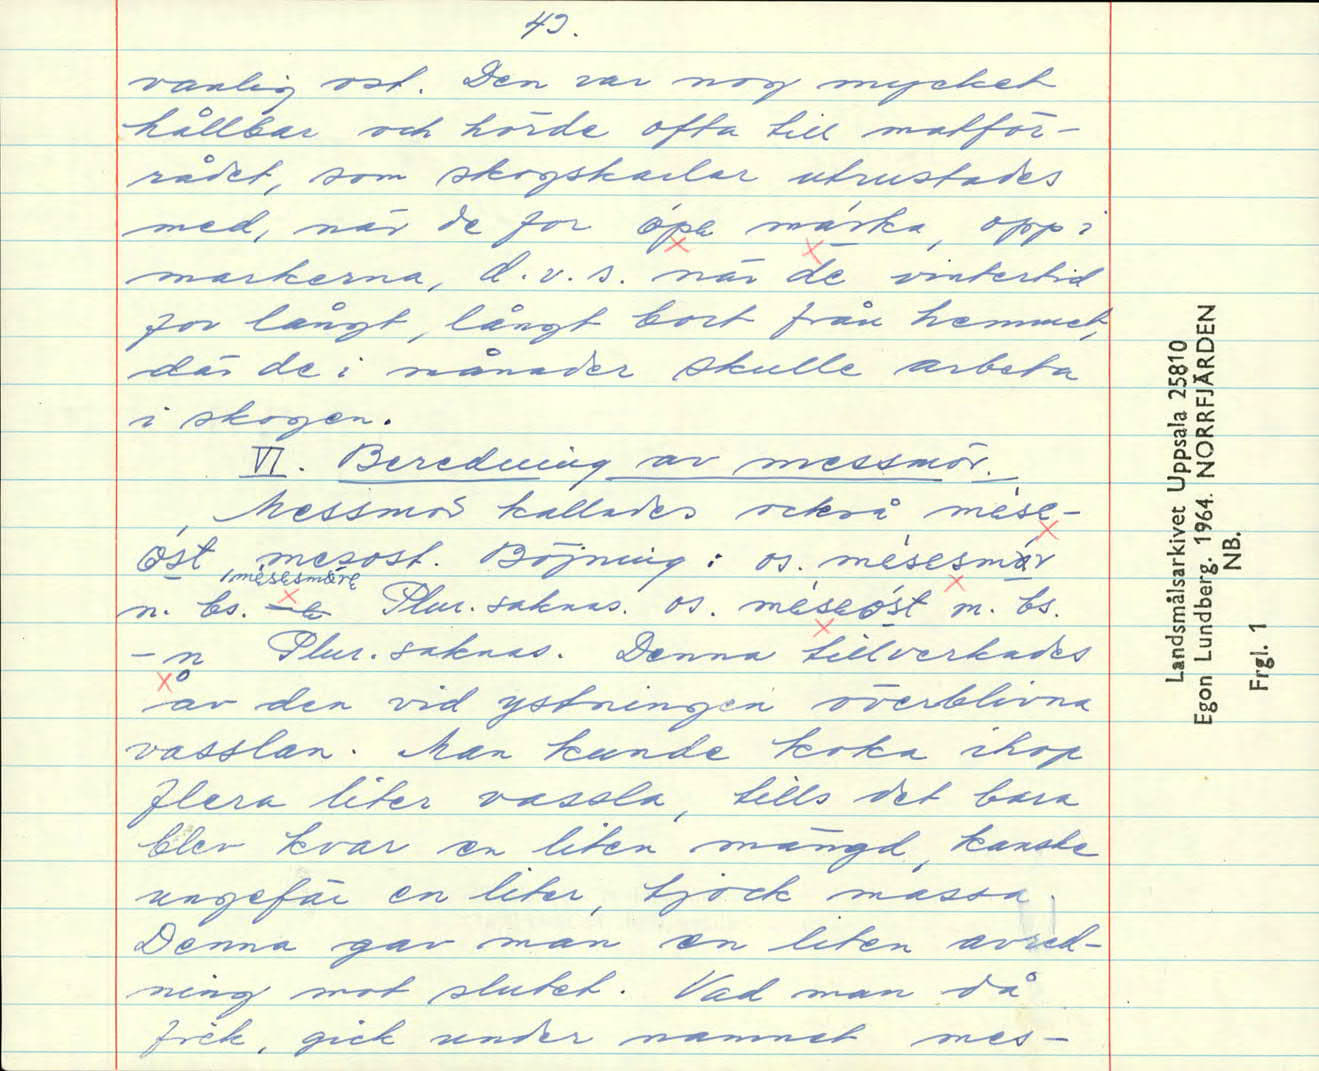 43.
vanlig ost. Den var nog mycket
hållbar och hörde ofta till matför-
rådet, som skogskarlar utrustades
med, när de for ópa márka, opp i
markerna, d.v.s. när de vintertid
for långt, långt bort från hemmet,
där de i månader skulle arbeta
i skogen.
VI. Beredning av messmör.
Messmör kallades också mése-
óst, mesost. Böjning: os. mésesmör
mésesmöre
n. bs. Plur. saknas. os. méseóst m. bs.
-n Plur. saknas. Denna tillverkades
av den vid ystningen överblivna
vasslan. Man kunde koka ihop
flera liter vassla, tills det bara
blev kvar en liten mängd, kanske
ungefär en liter, tjock massa.
Denna gav man en liten avred-
ning mot slutet. Vad man då
fick, gick under namnet mes-
Landsmålsarkivet Uppsala 25810
Egon Lundberg. 1964. NORRFJÄRDEN
NB.
Frgl. 1